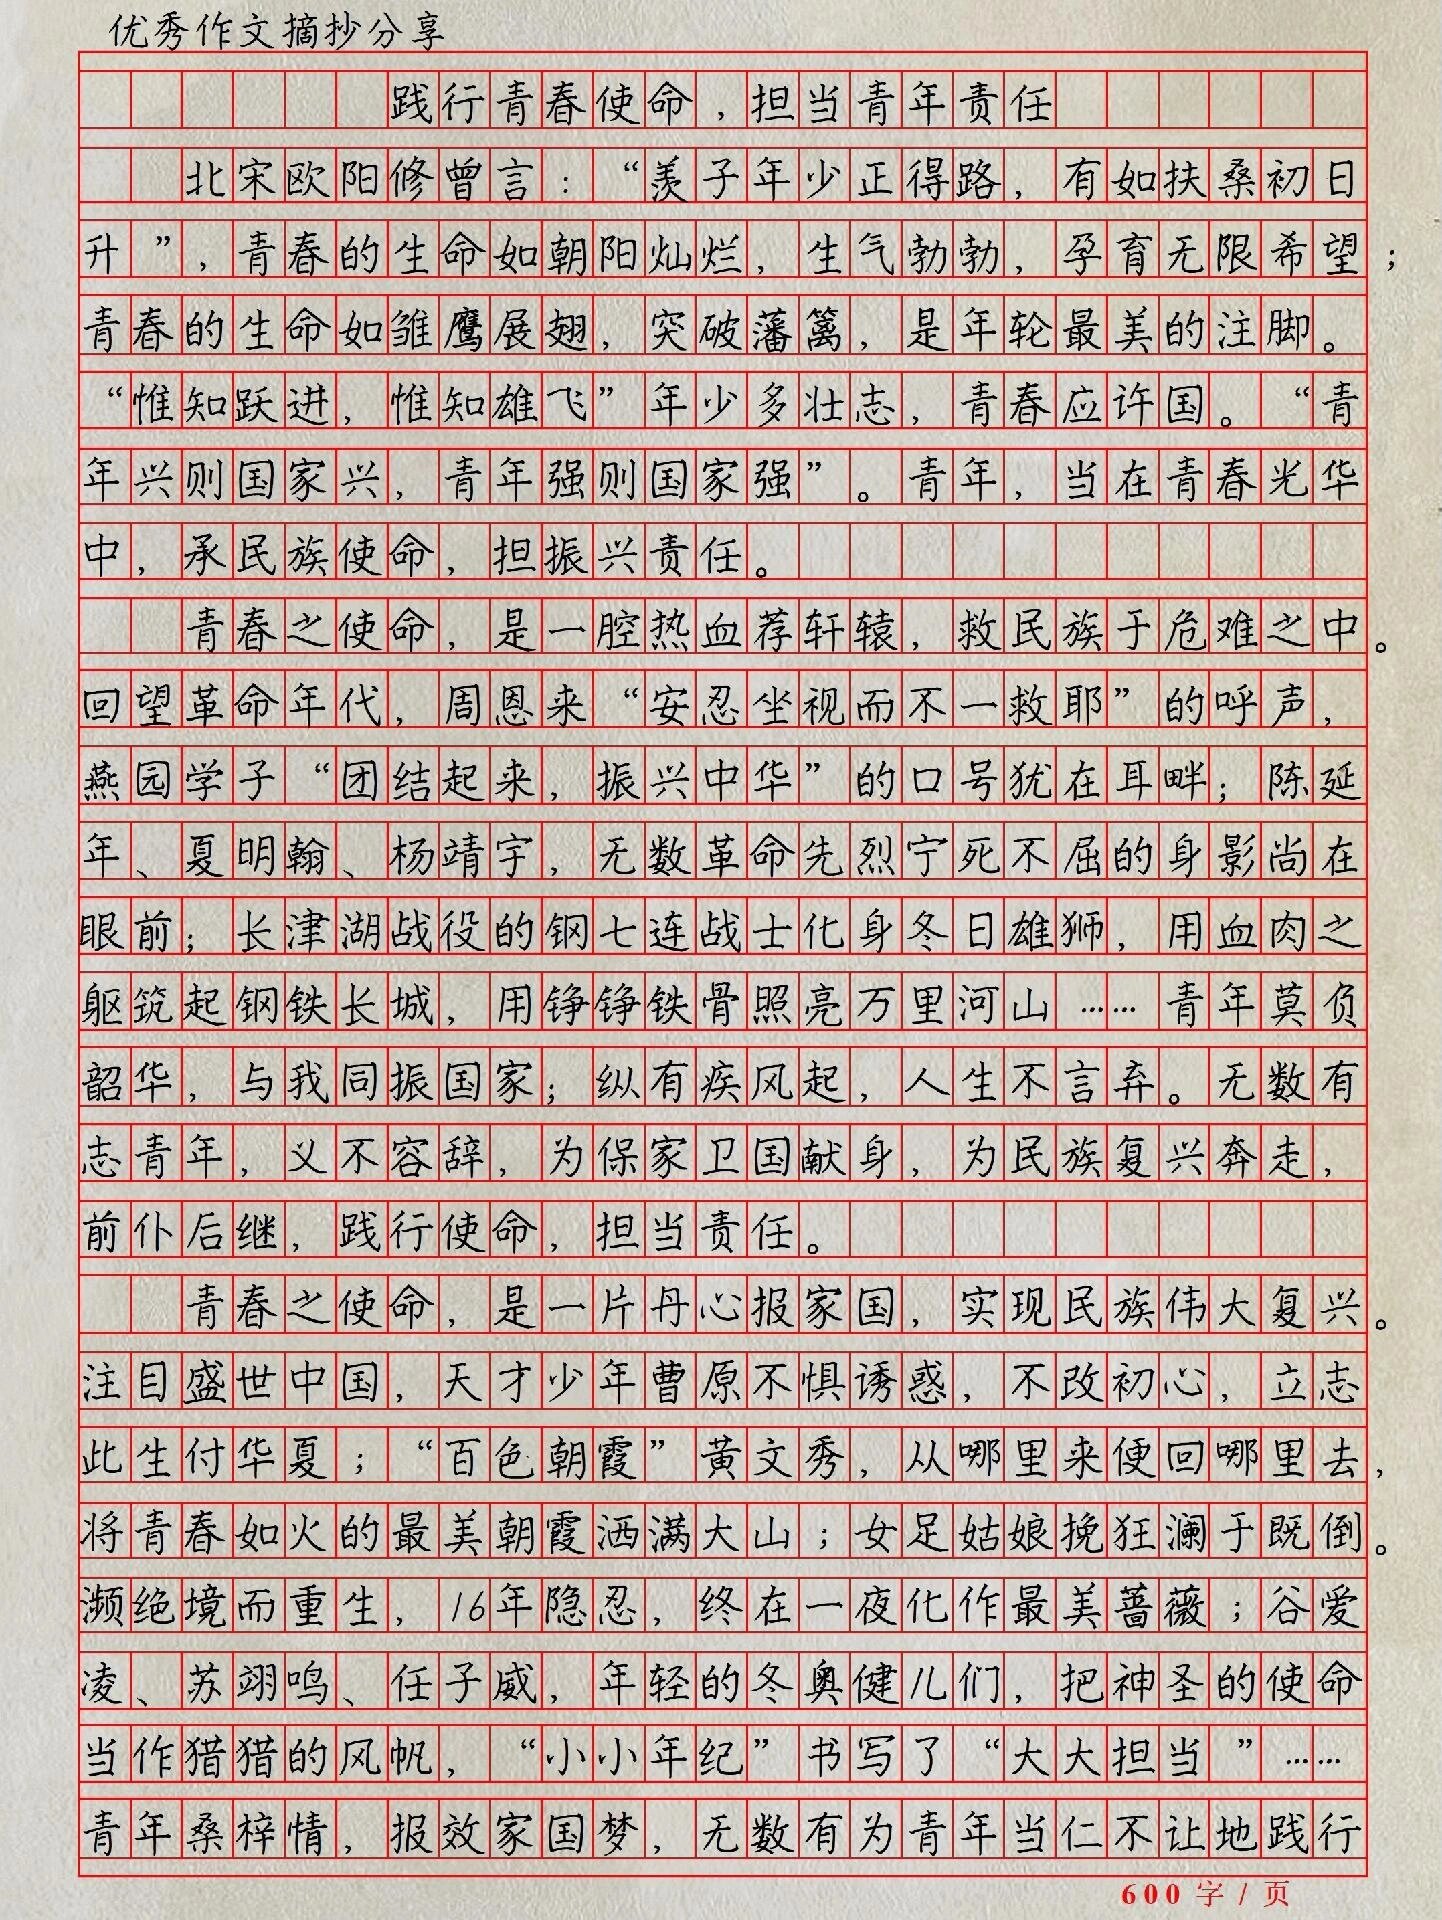 优秀作文摘抄分享
践行青春使命，担当青年责任
北宋欧阳修曾言：“羡子年少正得路，有如扶桑初日
升”，青春的生命如朝阳灿烂，生气勃勃，孕育无限希望；
青春的生命如雏鹰展翅，突破藩篱，是年轮最美的注脚。
“惟知跃进，惟知雄飞”年少多壮志，青春应许国。“青
年兴则国家兴，青年强则国家强”。青年，当在青春光华
中，承民族使命，担振兴责任。
青春之使命，是一腔热血荐轩辕，救民族于危难之中。
回望革命年代，周恩来“安忍坐视而不一救耶”的呼声，
燕园学子“团结起来，振兴中华”的口号犹在耳畔；陈延
年、夏明翰、杨靖宇，无数革命先烈宁死不屈的身影尚在
眼前；长津湖战役的钢七连战士化身冬日雄狮，用血肉之
躯筑起钢铁长城，用铮铮铁骨照亮万里河山……青年莫负
韶华，与我同振国家；纵有疾风起，人生不言弃。无数有
志青年，义不容辞，为保家卫国献身，为民族复兴奔走，
前仆后继，践行使命，担当责任。
青春之使命，是一片丹心报家国，实现民族伟大复兴。
注目盛世中国，天才少年曹原不惧诱惑，不改初心，立志
此生付华夏；“百色朝霞”黄文秀，从哪里来便回哪里去，
将青春如火的最美朝霞洒满大山；女足姑娘挽狂澜于既倒。
濒绝境而重生，16年隐忍，终在一夜化作最美蔷薇；谷爱
凌、苏翊鸣、任子威，年轻的冬奥健儿们，把神圣的使命
当作猎猎的风帆，“小小年纪”书写了“大大担当”……
青年桑梓情，报效家国梦，无数有为青年当仁不让地践行
600字/页